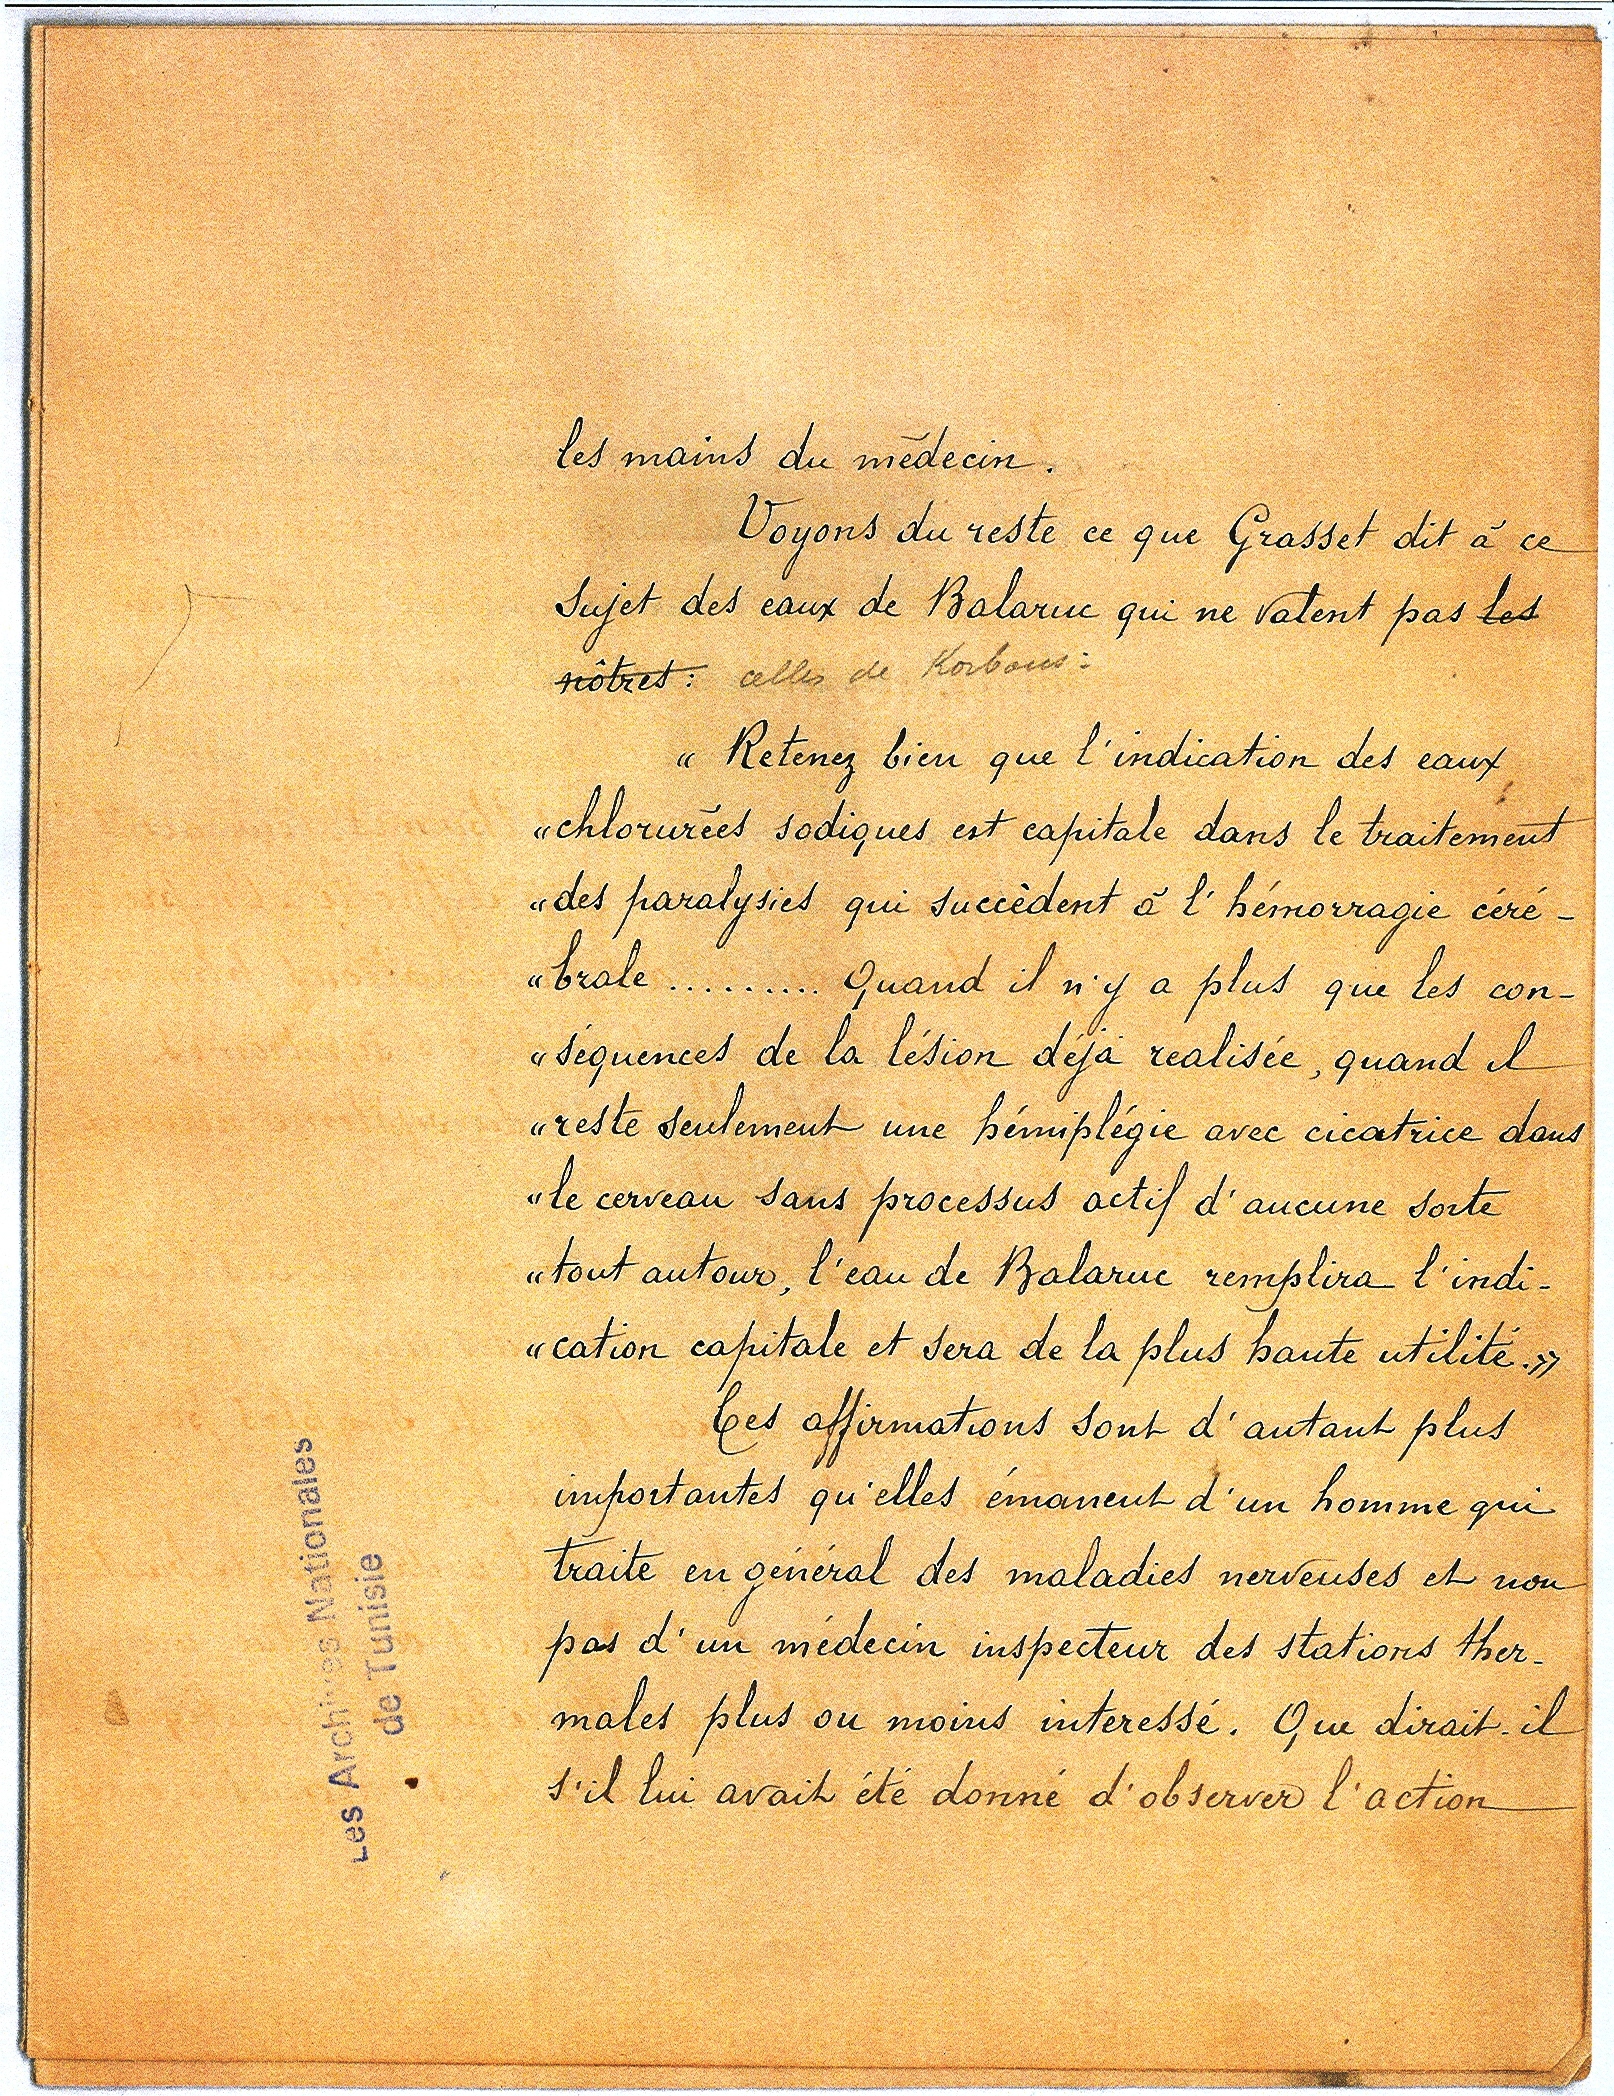 les mains du médecin.
Voyons du reste ce que Grasset dit à ce
sujet des eaux de Balaruc qui ne valent pas les
nôtres: celles de Korbous:
« Retenez bien que l'indication des eaux
« chlorurées sodiques est capitale dans le traitement
« des paralysies qui succèdent à l'hémorragie céré-
« brale ......... Quand il n'y a plus que les con-
« séquences de la lésion déjà realisée, quand il
« reste seulement une hémiplégie avec cicatrice dans
« le cerveau sans processus actif d'aucune sorte
« tout autour, l'eau de Balaruc remplira l'indi-
« cation capitale et sera de la plus haute utilité.»
Ces affirmations sont d'autant plus
importantes qu'elles émanent d'un homme qui
traite en général des maladies nerveuses et non
pas d'un médecin inspecteur des stations ther-
males plus ou moins interessé. Que dirait-il
s'il lui avait été donné d'observer l'action
Les Archives Nationales
de Tunisie